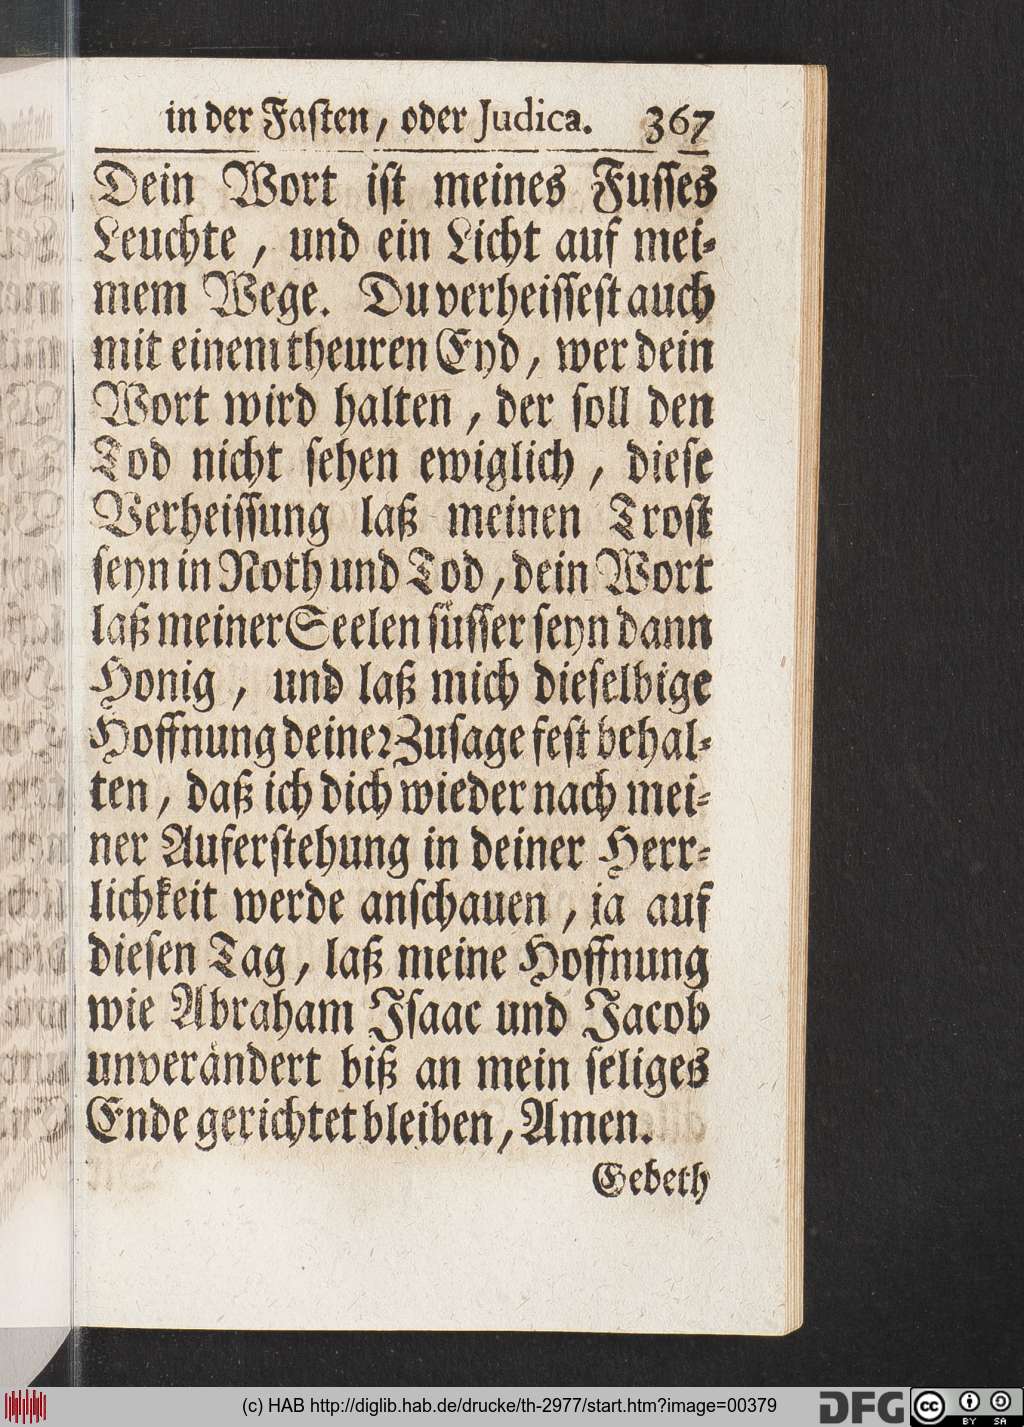 in der Faſten, oder Judica. 367
Dein Wort iſt meines Fuſſes
Leuchte, und ein Licht auf mei-
mem Wege. Du verheiſſeſt auch
mit einem theuren Eyd, wer dein
Wort wird halten, der ſoll den
Tod nicht ſehen ewiglich, dieſe
Verheiſſung laß meinen Troſt
ſeyn in Noth und Tod, dein Wort
laß meiner Seelen ſuͤſſer ſeyn dann
Honig, und laß mich dieſelbige
Hoffnung deiner Zuſage feſt behal-
ten, daß ich dich wieder nach mei-
ner Auferſtehung in deiner Herr-
lichkeit werde anſchauen, ja auf
dieſen Tag, laß meine Hoffnung
wie Abraham Iſaac und Jacob
unveraͤndert biß an mein ſeliges
Ende gerichtet bleiben, Amen.
Gebeth
(c) HAB http://diglib.hab.de/drucke/th-2977/start.htm?image=00379
DFG
cc BY SA